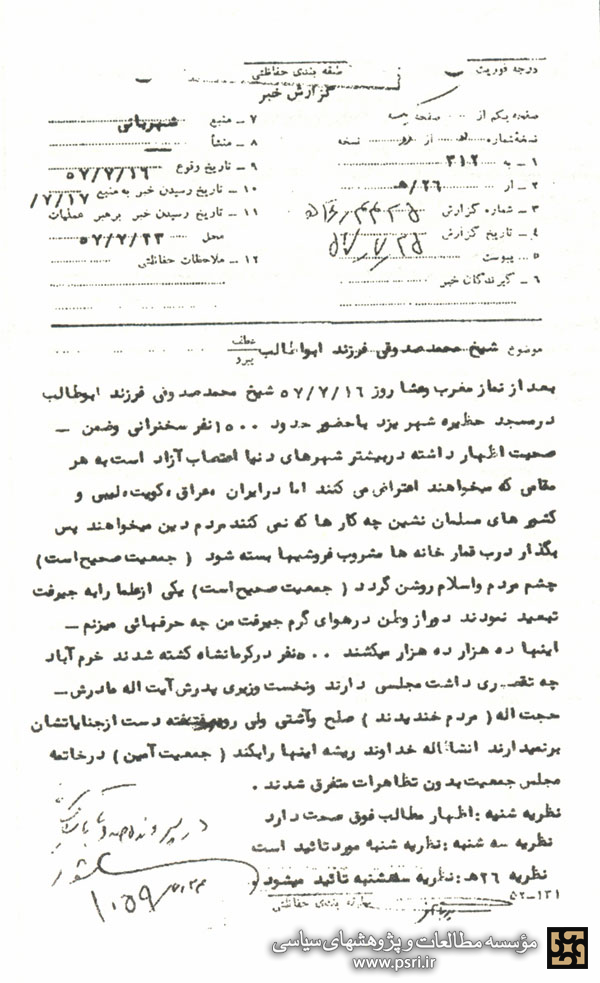 درجه فوریت
طبقه بندی حفاظتی
گزارش خبر
صفحه یکم از صفحه
نسخه شماره از نسخه
۱ ـ به ۳۱۲
۲ ـ از ۲۶/هـ
۳ ـ شماره گزارش
۴ ـ تاریخ گزارش
۵ ـ پیوست
۶ ـ گیرندگان خبر
۷ ـ منبع شهربانی
۸ ـ منشأ
۹ ـ تاریخ وقوع ۵۷/۷/۱۶
۱۰ ـ تاریخ رسیدن خبر به منبع ۷/۱۷/
۱۱ ـ تاریخ رسیدن خبر برهبر عملیات
محل ۵۷/۷/۲۳
۱۲ ـ ملاحظات حفاظتی
موضوع شیخ محمدصدوقی فرزند ابوطالب عطف پیرو
بعد از نماز مغرب وعشا روز ۵۷/۷/۱۶ شیخ محمدصدوقی فرزند ابوطالب
درمسجد حظیره شهر یزد باحضور حدود ۱۵۰۰نفر سخنرانی وضمن ـ
صحبت اظهار داشته دربیشتر شهرهای دنیا اعتصاب آزاد است به هر
مقامی که میخواهند اعتراض می کنند اما درایران ،عراق ،کویت ،لیبی و
کشور های مسلمان نشین چه کار ها که نمی کنند مردم دین میخواهند پس
بگذار درب قمار خانه ها مشروب فروشیها بسته شود ( جمعیت صحیح است)
چشم مردم واسلام روشن گردد ( جمعیت صحیح است) یکی ازعلما رابه جیرفت
تبعید نمودند دوراز وطن درهوای گرم جیرفت من چه حرفهائی میزنم ـ
اینها ده هزار ده هزار میکشند ۵۰۰نفر درکرمانشاه کشته شدند خرم آباد
چه تقصیری داشت مجلسی دارند ونخست وزیری پدرش آیت اله مادرش ـ
حجت اله ( مردم خندیدند ) صلح وآشتی ولی دست ازجنایاتشان
برنمیدارند انشااله خداوند ریشه اینها رابکند ( جمعیت آمین ) درخاتمه
مجلس جمعیت بدون تظاهرات متفرق شدند .
نظریه شنبه :اظهار مطالب فوق صحت دارد
نظریه سه شنبه :نظریه شنبه مورد تائید است
نظریه ۲۶هـ :نظریه سه شنبه تائید میشود
در پرونده
۱۰۵۹
۵۲ـ۱۳۱
طبقه بندی حفاظتی
مؤسسه مطالعات و پژوهشهای سیاسی
www.psri.ir